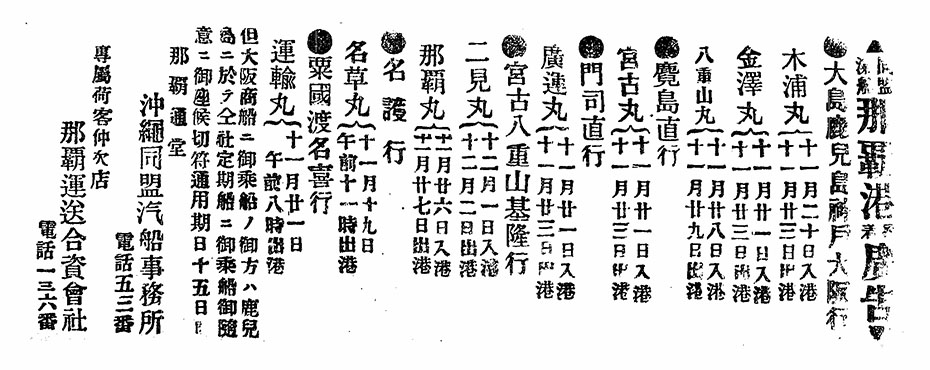 那覇港廣告
●大島鹿兒島神戸大阪行
木浦丸
十一月二十日入港
十一月廿三日出港
金澤丸
十一月廿一日入港
十一月廿三日出港
八重山丸
十一月廿八日入港
十一月廿九日出港
●麑島直行
宮古丸
十一月廿一日入港
十一月廿三日出港
●門司直行
廣運丸
十一月廿一日入港
十一月廿三日出港
●宮古八重山基隆行
二見丸
十二月一日入港
十二月二日出港
那覇丸
十一月廿六日入港
十一月廿七日出港
●名護行
名草丸
十一月十九日
午前十一時出港
●粟國渡名喜行
運輸丸
十一月廿一日
午前八時出港
但大阪商船ニ御乘船ノ御方ハ鹿兒
島ニ於テ仝社定期船ニ御乘船御隨
意ニ御座候切符通用期日十五日間
那覇通堂
沖繩同盟汽船事務所
電話五三番
專屬荷客仲次店
那覇運送合資會社
電話一三六番